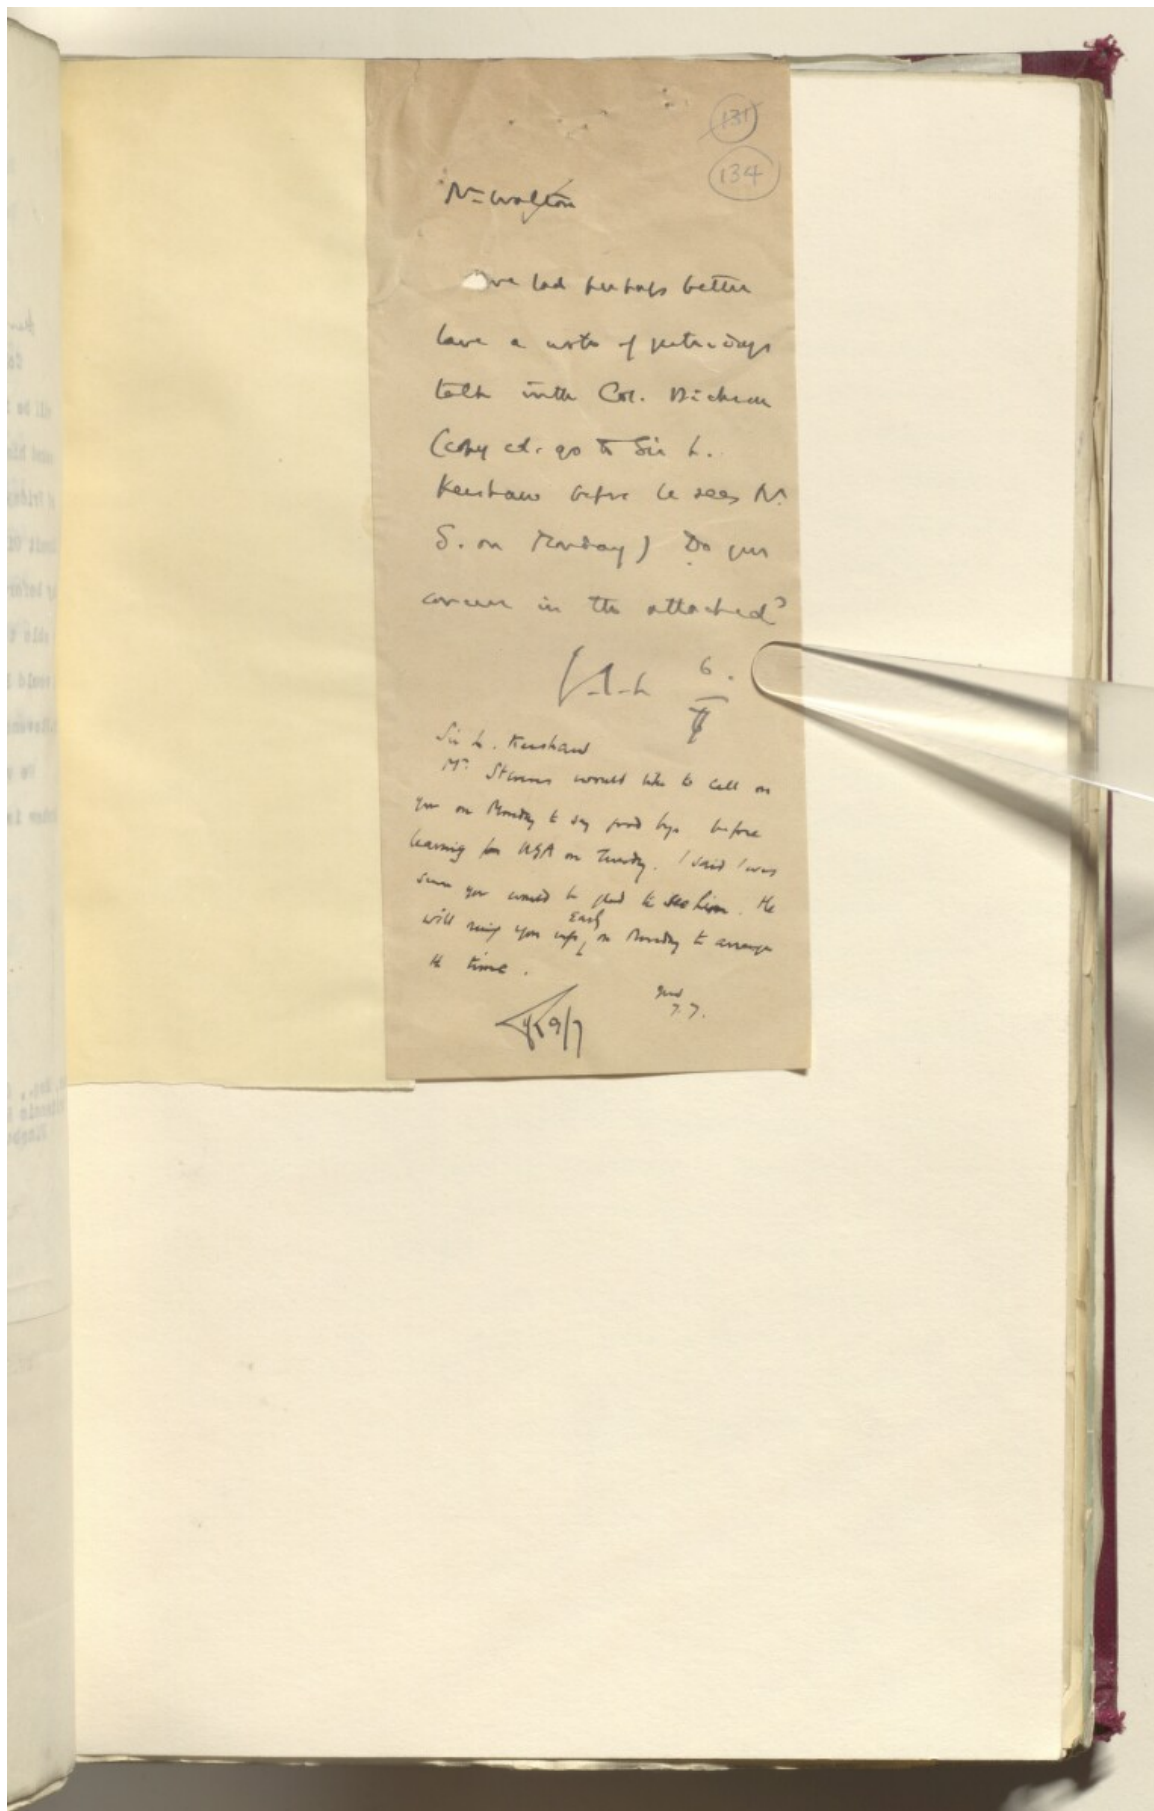 131
134
Mr Walton
We had perhaps better
have a note of yesterday's
talk with Col. Dickson
(copy cd. go to Sir L.
Kershaw before he sees Mr
S. on Monday) Do you
concur in the attached?
6.
Sir L. Kershaw
Mr. Stevens would like to call on
you on Monday to say good bye before
leaving for USA on Tuesday. I said I was
sure you would be glad to see him. He
will ring you up, early on Monday to arrange
the time.
7.7.
9/7